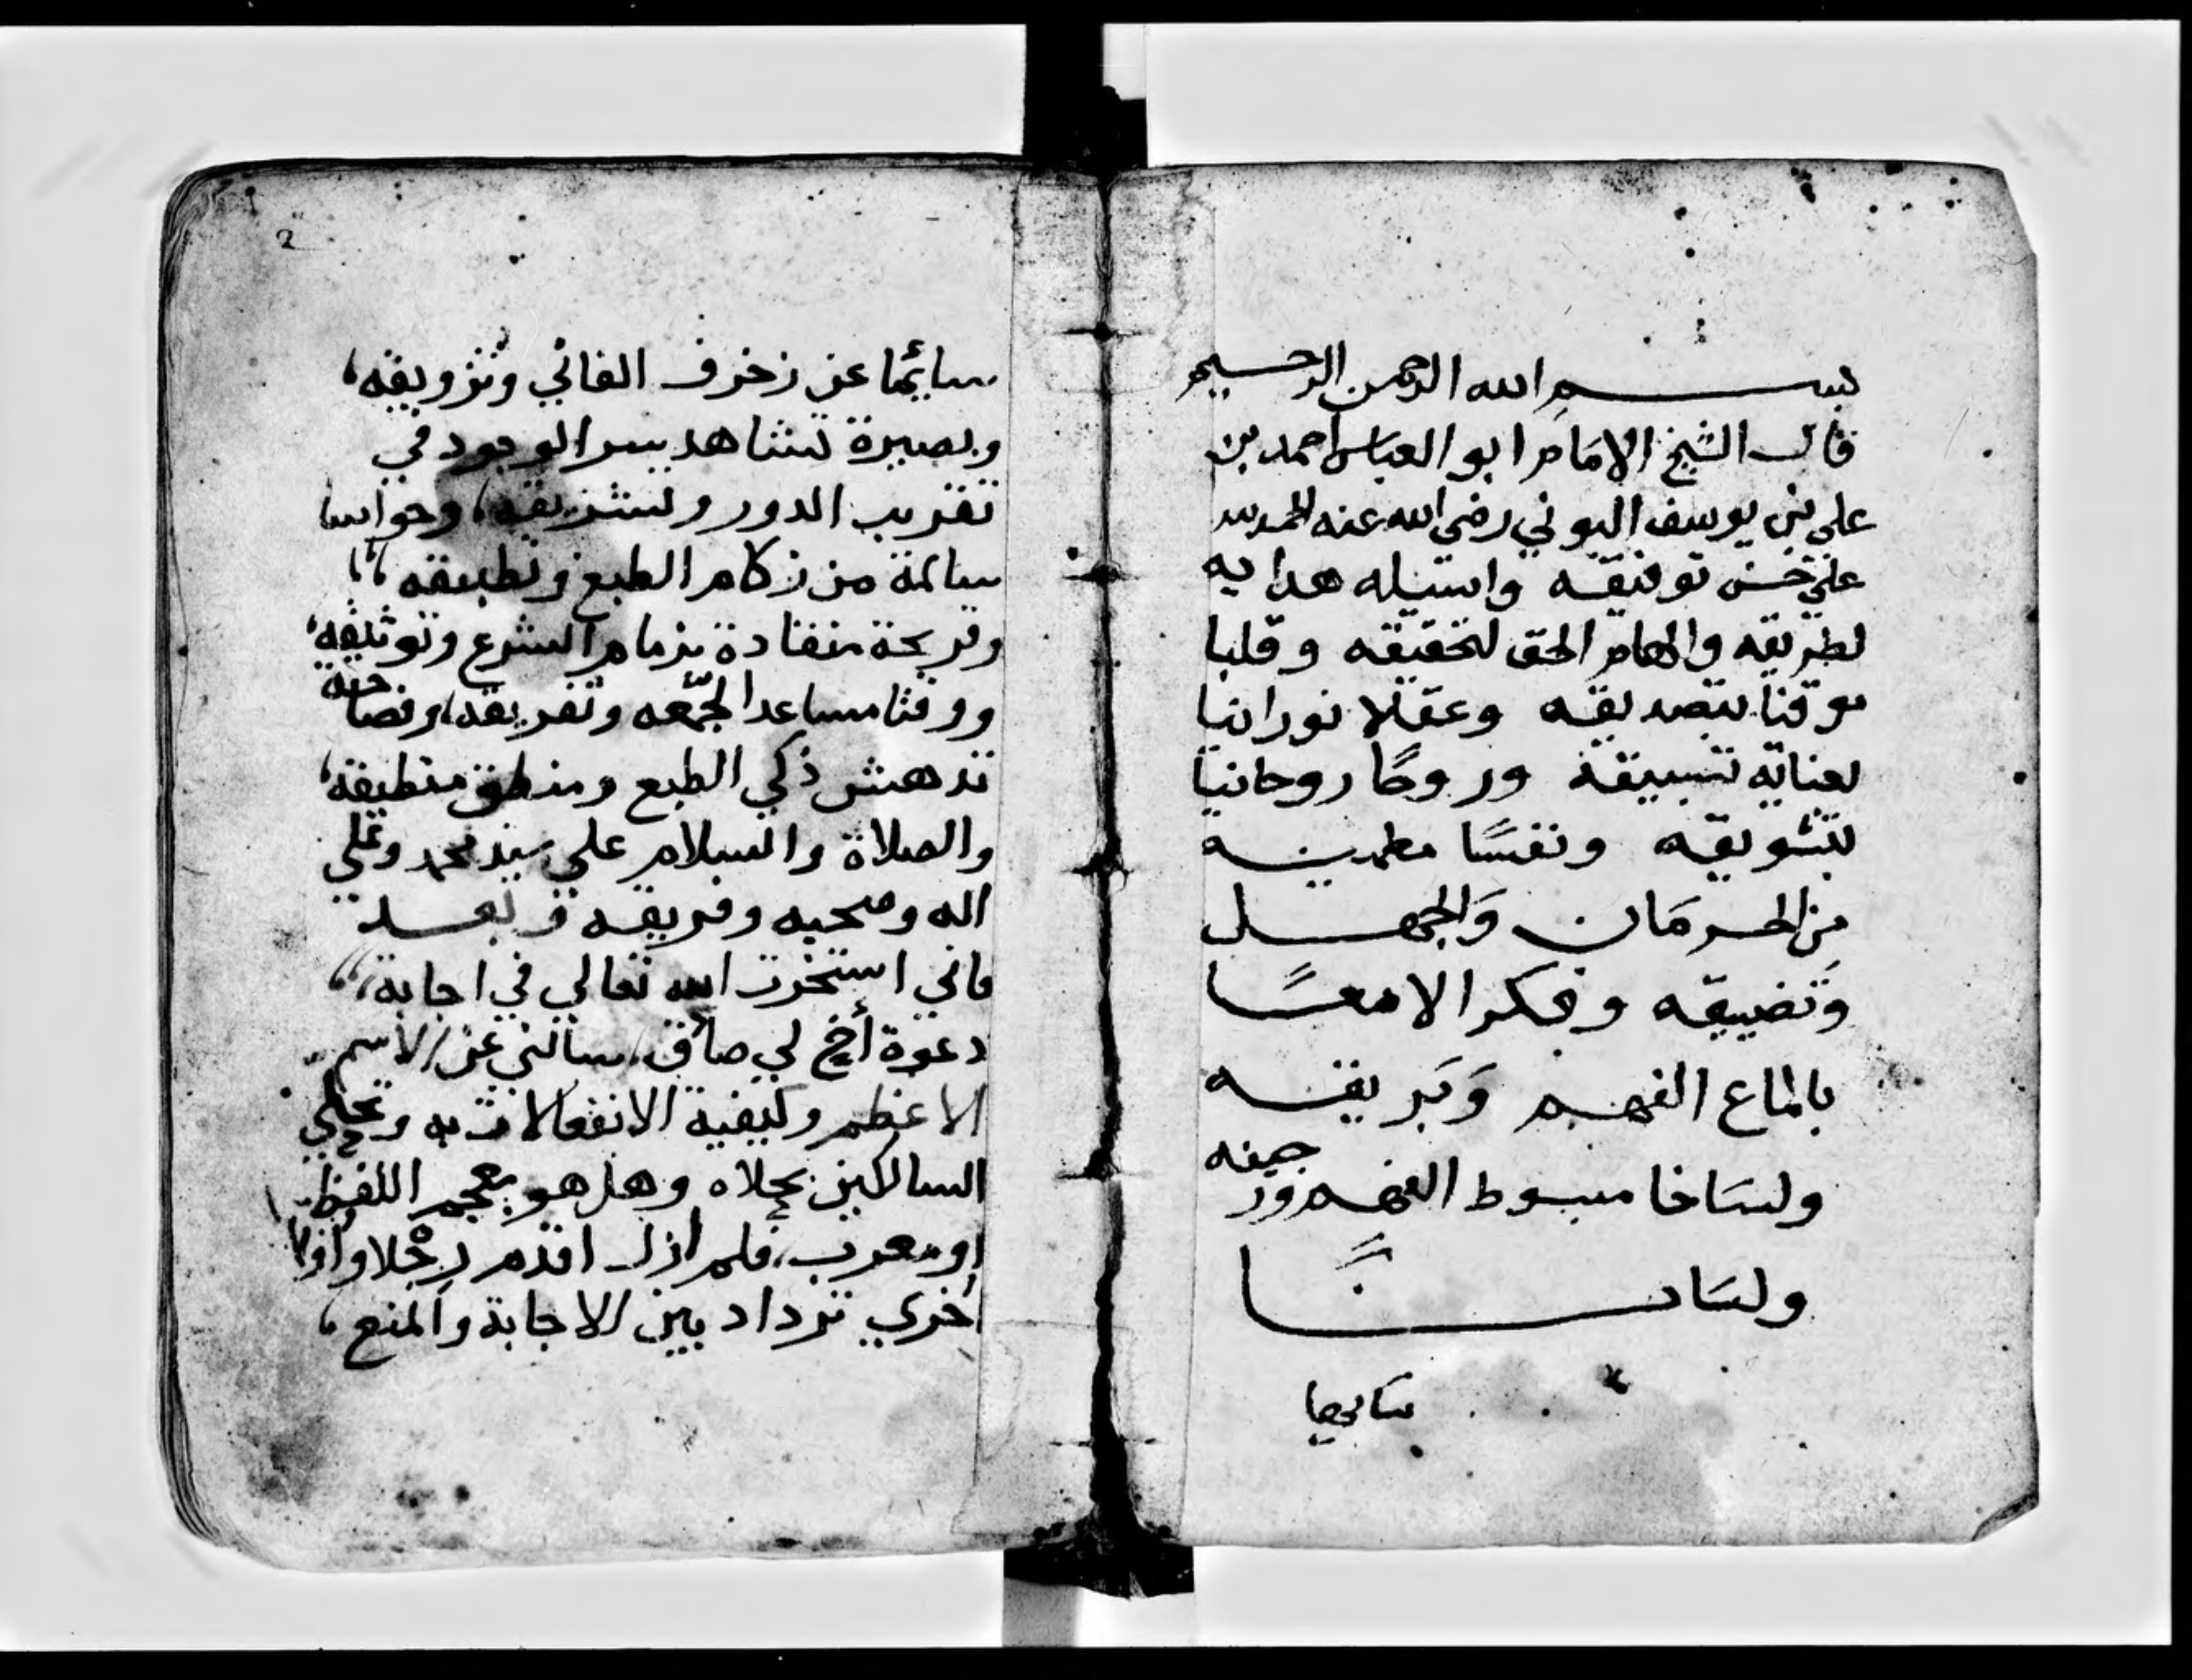 بسم الله الرحمن الرحيم
قال الشيخ الامام ابو العباس احمد بن
علي بن يوسف البوني رضي الله عنه الحمد لله
علي حسن توفيقه واسيله هدايه
لطريقه والهام الحق لتحقيقه وقلبا
موقنا بتصديقه وعقلا نورانيا
بعنايه تسبيقه وروحًا روحانيا
بتشويقه ونفسًا مطمينه
من الحرمان والجهل
وتضييقه وفكرا لامعًا
بالماع الفهم وبريقه
ولساخا مبسوط الفهم ور
ولسانًا
سايحا
2
سايحا عن زخرف الفاني وتزويقه،
وبصيرة تشاهد سر الوجود في
تغريب الدور وتشريقه، وحواسا
سالمة من زكام الطبع وتطبيقه،،
وقريحة منقادة بزمام الشرع وتوثيقه،
ووقتا مساعدا لجمعه وتفريقه، وفصاحة
تدهش ذكي الطبع ومنطق منطيقه،
والصلاة والسلام علي سيد محمد وعلي
اله وصحبه وفريقه وبعد
فاني استخرت الله تعالي في اجابة،،
دعوة أخ لي صافي، سالني عن الاسم
الاعظم وكيفية الانفعالات به وتحلي
السالكين بحلاه وهل هو بمعجم اللفظ
او معرب، فلم ازل اقدم رجلا و
اخري ترداد بين الاجابة والمنع،